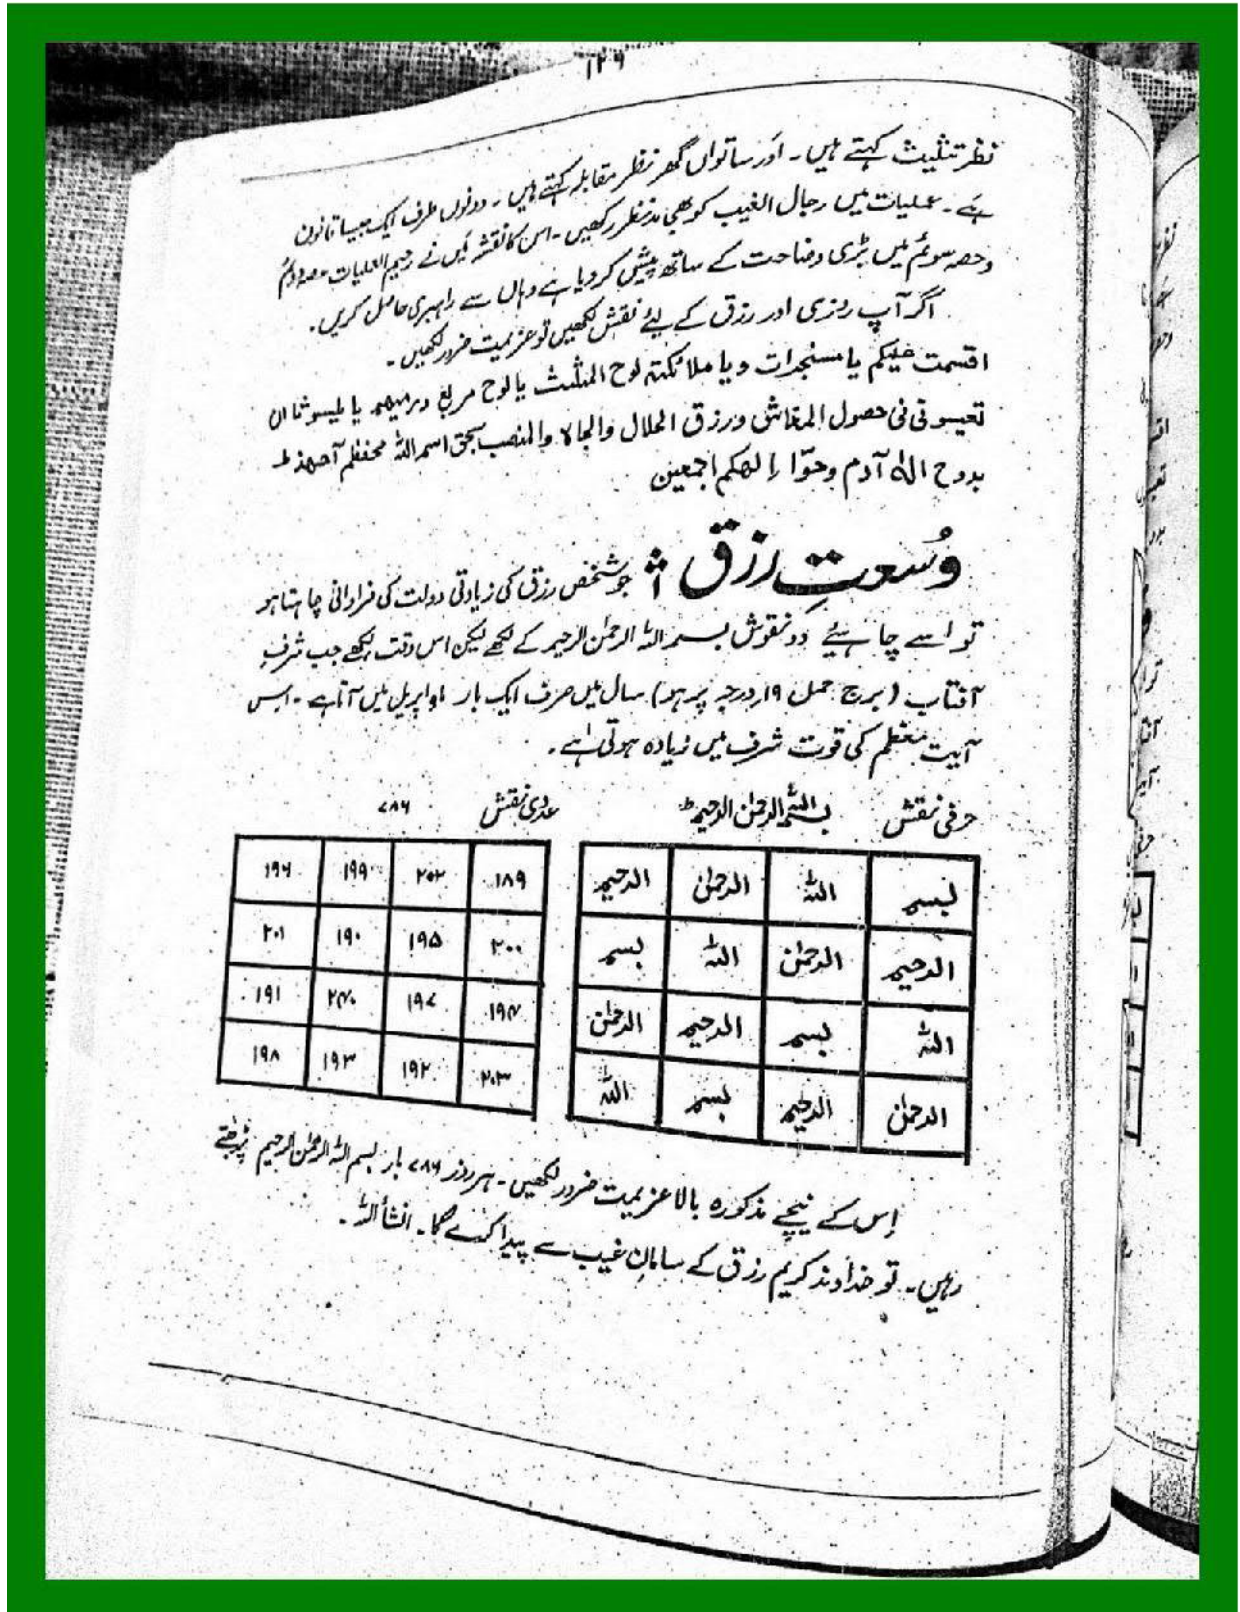 ۱۲۹
نظر تثلیث کہتے ہیں۔ اور ساتواں گھر نظر مقابلہ کہتے ہیں۔ دونوں طرف ایک جیسا قانون
ہے۔ عملیات میں رجال الغیب کو بھی مدنظر رکھیں۔ اس کا نقشہ میں نے رحیم العملیات حصہ دوئم
وحصہ سوئم میں بڑی وضاحت کے ساتھ پیش کر دیا ہے وہاں سے راہبری حاصل کریں۔
اگر آپ روزی اور رزق کے لیئے نقش لکھیں تو عزیمت ضرور لکھیں۔
اقسمت علیکم یا مسنجرات و یا ملائکتہ لوح المثلث یا لوح مربع یا
فی حصول المعاش ورزق الحلال والجاہ والمنصب بحق اسم اللہ
بدوح الہ آدم وحوّا الھکم اجمعین
وُسعتِ رزق جو شخص رزق کی زیادتی دولت کی فراوانی چاہتا ہو
تو اسے چاہیئے دو نقوش بسم اللہ الرحمٰن الرحیم کے لکھے لیکن اس وقت لکھے جب شرفِ
آفتاب (برج حمل ۱۹ درجہ پر ہو) سال میں صرف ایک بار ماہ اپریل میں آتا ہے۔ اس
آیت معظم کی قوت شرف میں زیادہ ہوتی ہے۔
حرفی نقش بسم اللہ الرحمٰن الرحیم عددی نقش ۷۸۶
بسم اللہ الرحمٰن الرحیم ۱۸۹ ۲۰۲ ۱۹۹ ۱۹۶
الرحیم الرحمٰن اللہ بسم ۲۰۰ ۱۹۵ ۱۹۰ ۲۰۱
اللہ بسم الرحیم الرحمٰن ۱۹۴ ۱۹۷ ۲۰۴ ۱۹۱
الرحمٰن الرحیم بسم اللہ ۲۰۳ ۱۹۲ ۱۹۳ ۱۹۸
اِس کے نیچے مذکورہ بالا عزیمت ضرور لکھیں۔ ہر روز ۷۸۶ بار بسم اللہ الرحمٰن الرحیم پڑھتے
رہیں۔ تو خداوند کریم رزق کے سامان غیب سے پیدا کرے گا۔ انشأاللہ۔